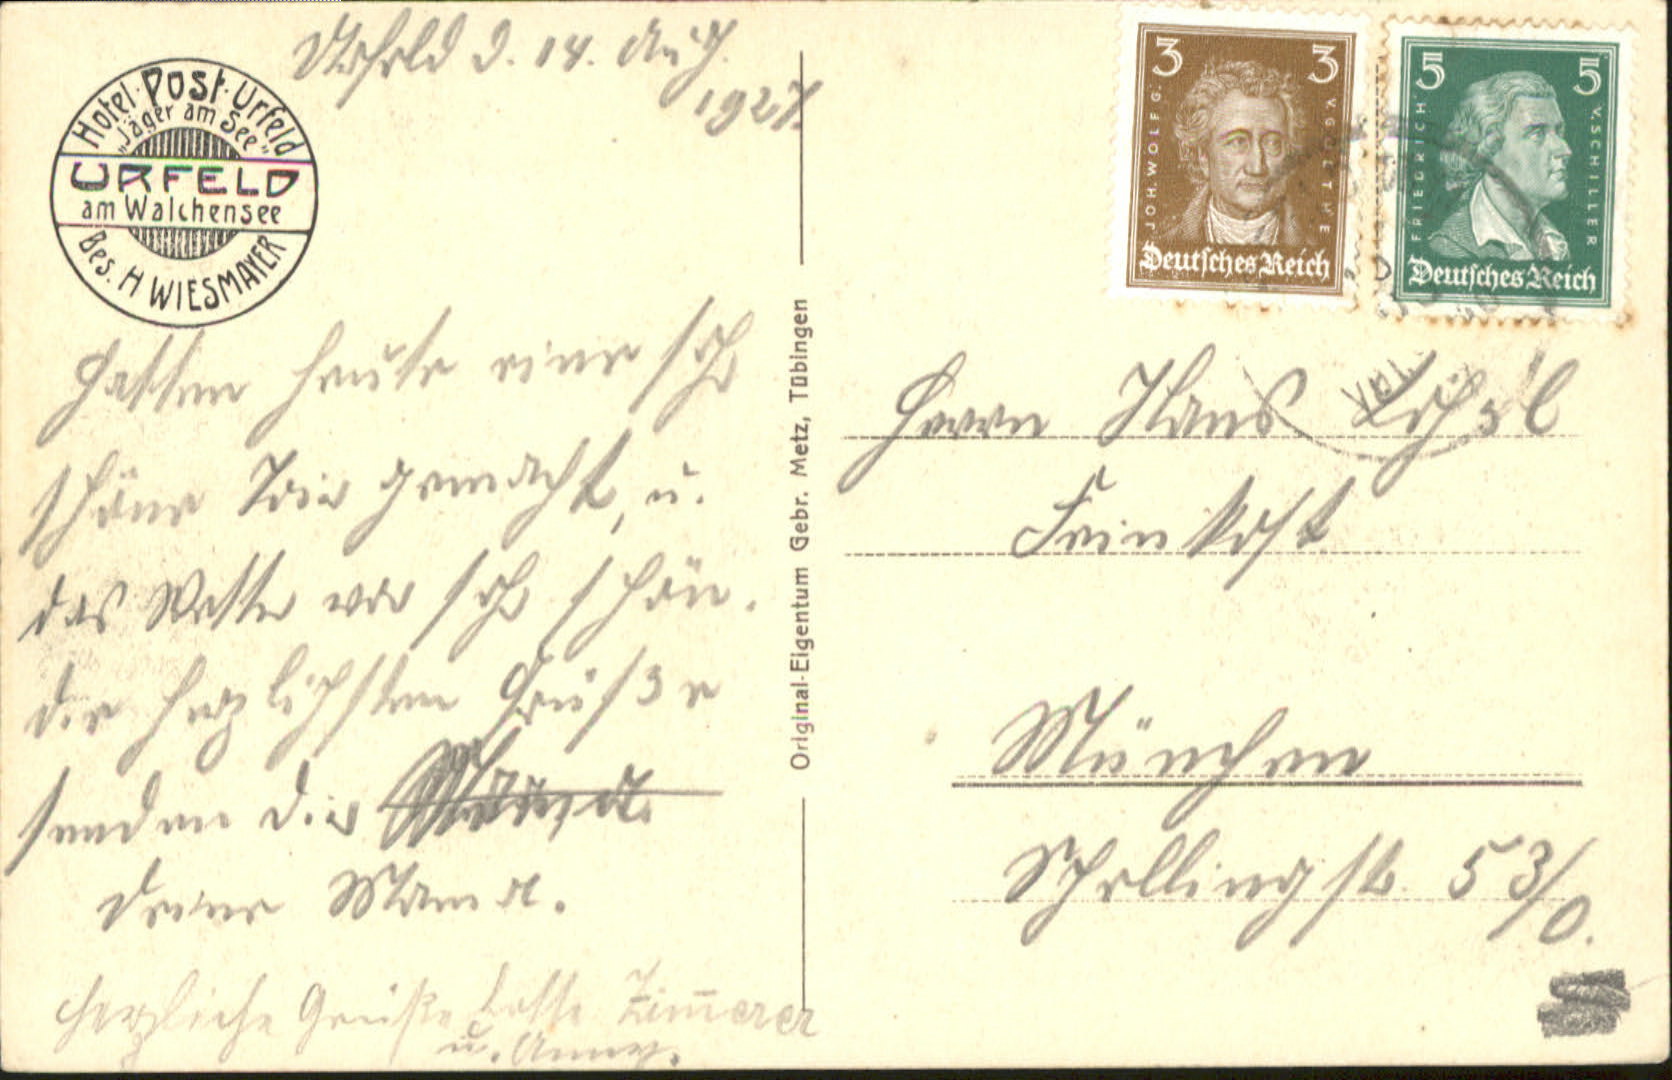 Hotel · Post · Urfeld
"Jäger am See"
URFELD
am Walchensee
Bes. H WIESMAYER
Urfeld d. 14. Aug.
1927.
Hatten heute eine sehr
schöne Tour gemacht, u.
das Wetter war sehr schön.
Die herzlichsten Grüße
senden Dir
Deine Mama.
Herzliche Grüße Lotte Zimmerer
u. Anny.
Original-Eigentum Gebr. Metz, Tübingen
3 3
JOH. WOLFG. V. GOETHE
Deutsches Reich
5 5
FRIEDRICH V. SCHILLER
Deutsches Reich
Herrn Hans
Feinkost
München
Schellingstr. 53/0.